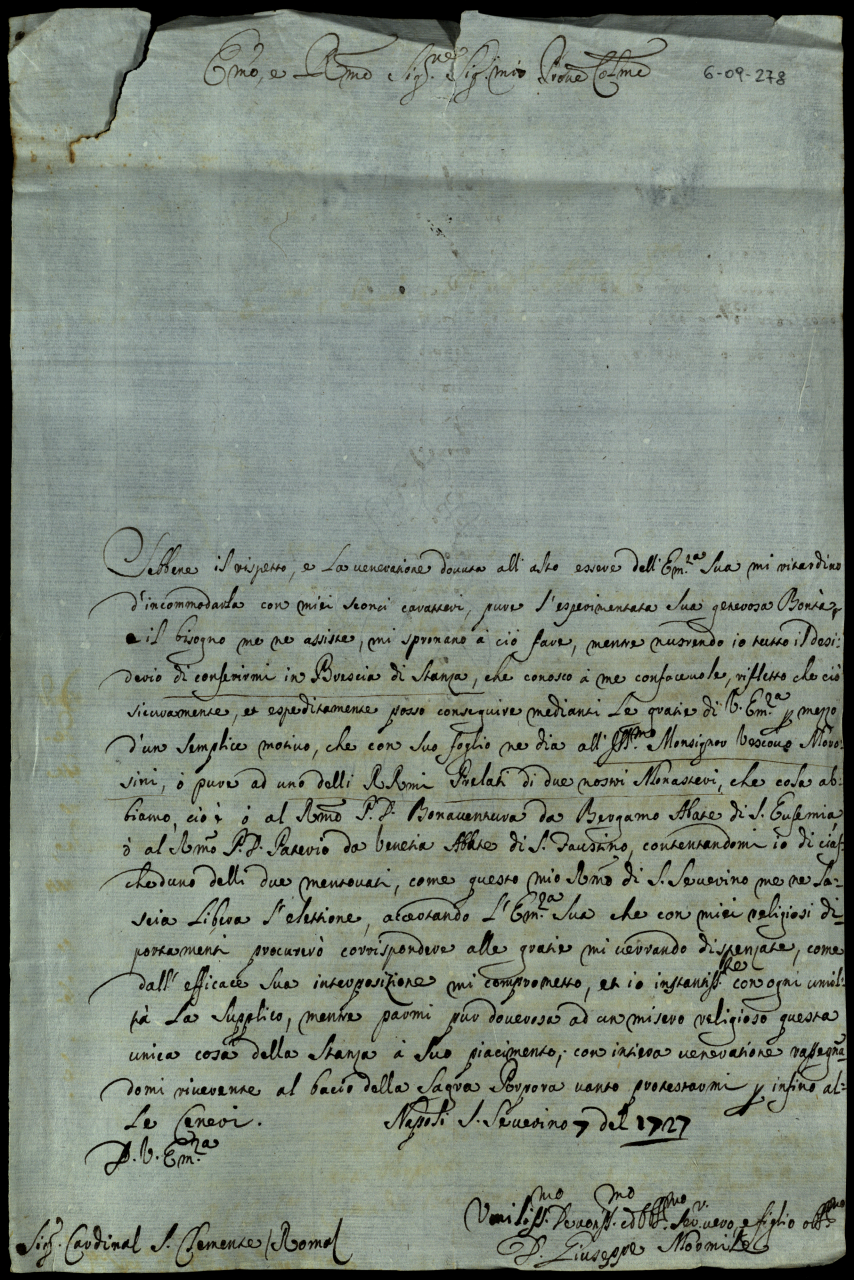 Emo, e Rmo Sig.re e Sig. mio Prone Colmo
6-09-278
Sebbene il rispetto, e la veneratione dovuta all' alto essere dell' Em.za Sua mi ritardino
d'incommodarla con miei sconci caratteri, pure l'esperimentata Sua generosa Bontà,
e il bisogno me ne assiste, mi spronano à ciò fare, mentre nutrendo io tutto il desi:
derio di conferirmi in Brescia di Stanza, che conosco à me confacevole, rifletto che ciò
sicuramente, et espeditamente posso conseguire medianti le gratie di V. Em.za p mezzo
d'un semplice motivo, che con Suo foglio ne dia all' Ill.mo Monsignor Vescovo Moro-
sini, ò pure ad uno delli RRmi Prelati di due nostri Monasteri, che colà ab-
biamo, cio è ò al Rmo P. D. Bonaventura da Bergamo Abate di S. Eufemia
ò al Rmo P. D. Paterio da Venetia Abbate di S. Faustino, contentandomi io di cias-
cheduno delli due mentovati, come questo mio Rmo di S. Severino me ne la-
scia libera l'elettione, accertando l'Em.za Sua che con miei religiosi di-
portamenti procurerò corrispondere alle gratie mi verrando dispenzate, come
dall' efficace Sua interposizione mi comprometto, et io instantiss.te con ogni umil-
tà La Supplico, mentre parmi pur doverosa ad un misero religioso questa
unica cosa della Stanza à Suo piacimento, con intiera veneratione rassegna
domi riverente al bacio della Sagra Porpora vanto protestarmi p infino al-
le Ceneri. Napoli S. Severino 7 del 1727
D. V. Em.za
Umiliss.mo Devotiss.mo ed Obb.mo Ser. vero, e figlio
Sig.r Cardinal S. Clemente / Roma/
D. Giuseppe Mormile